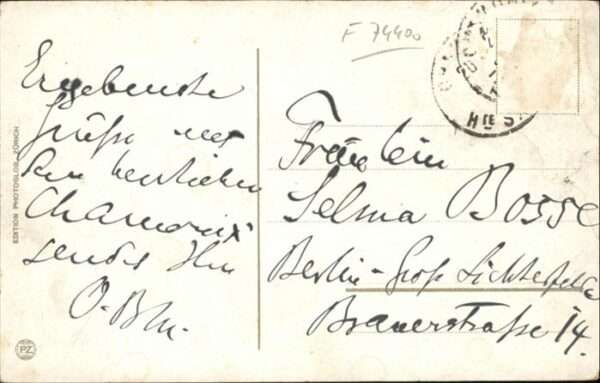 F 74400
HTE S.
EDITION PHOTOGLOB ZÜRICH
Ergebenste
Grüße aus
dem herrlichen
Chamonix
sendet Ihn
O. Bln.
Fräulein
Selma Bosse
Berlin-Groß Lichterfelde
Brauerstraße 14.
PZ